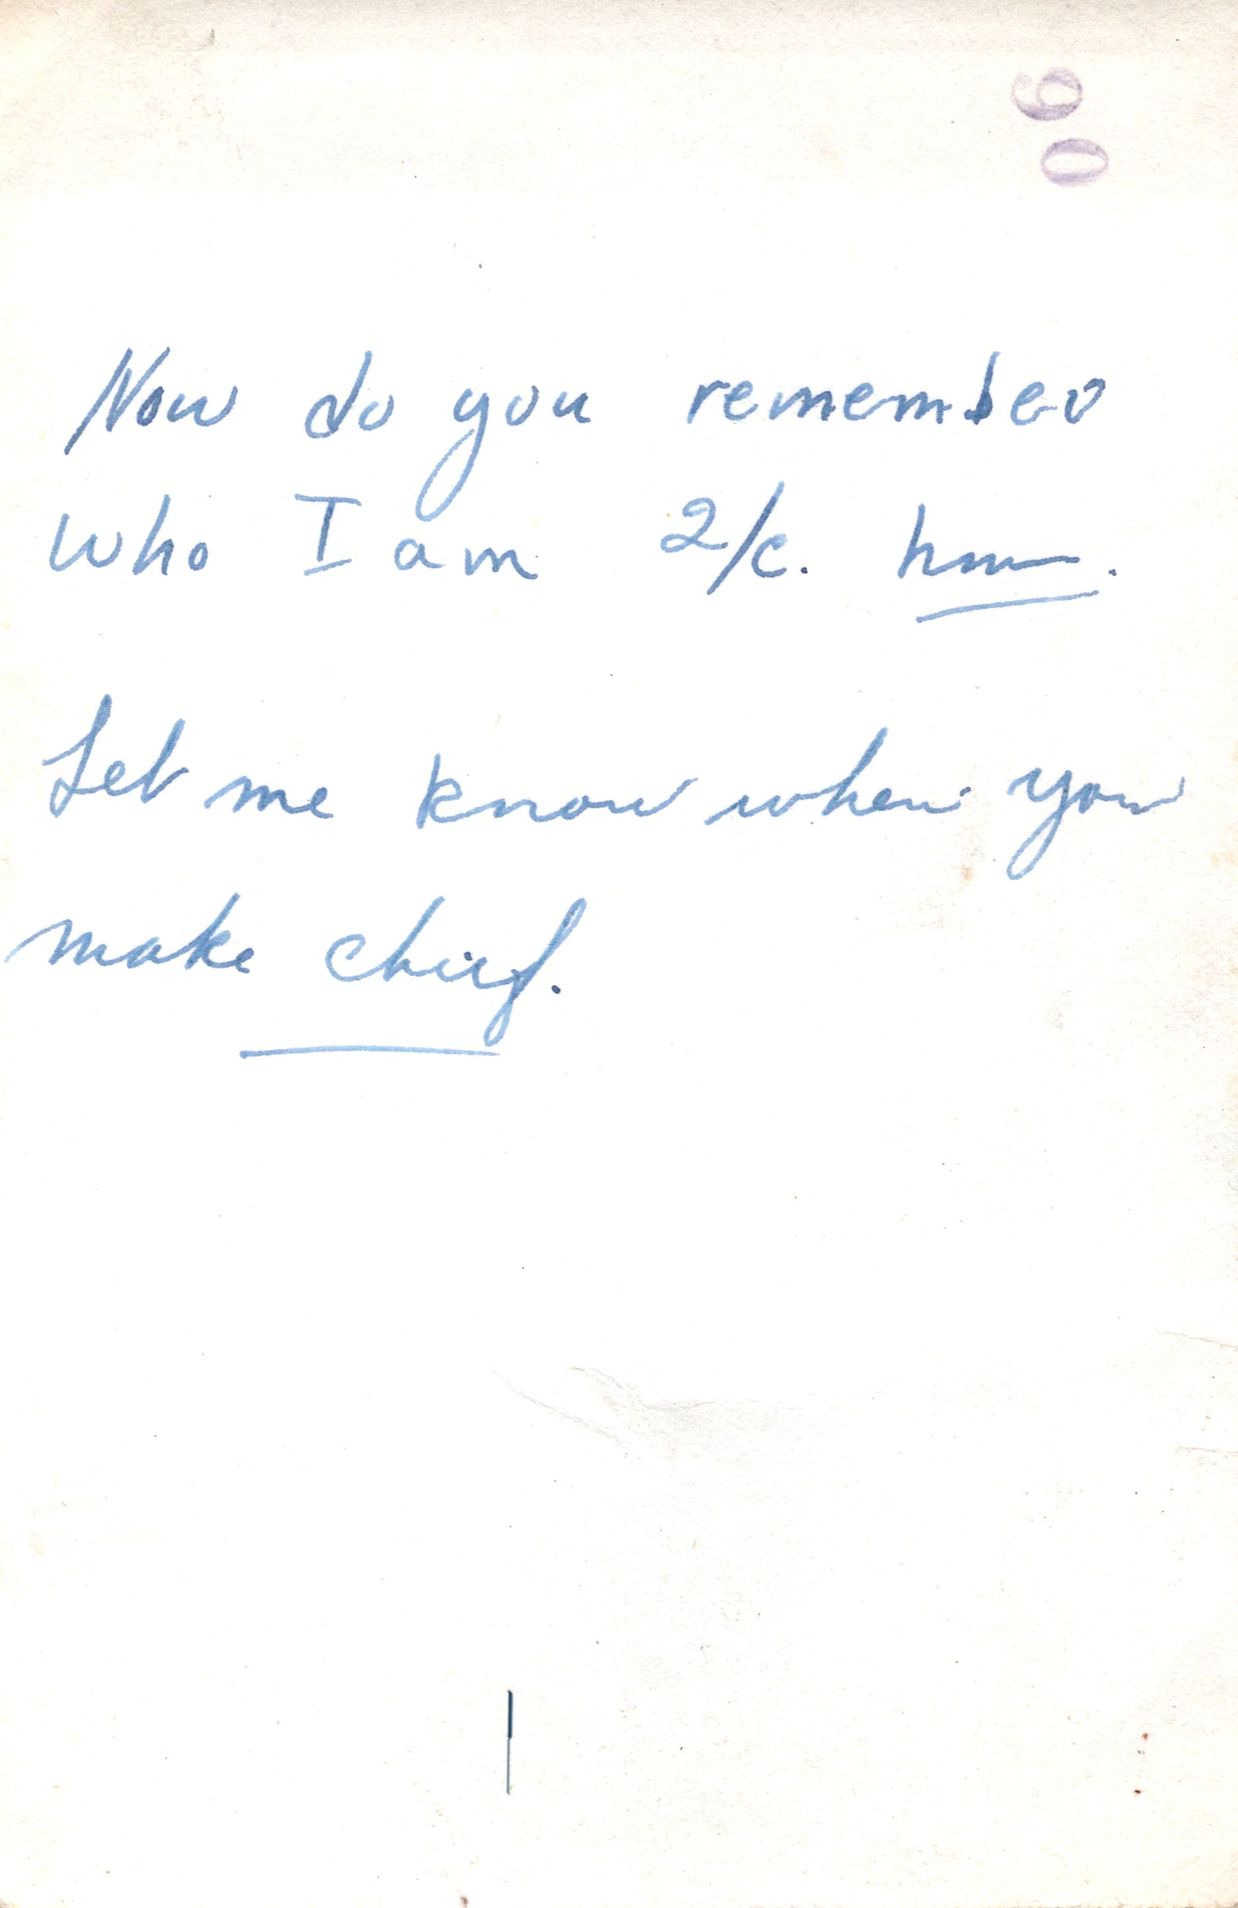 90
Now do you remember
who I am 2/c. hmm.
Let me know when you
make chief.